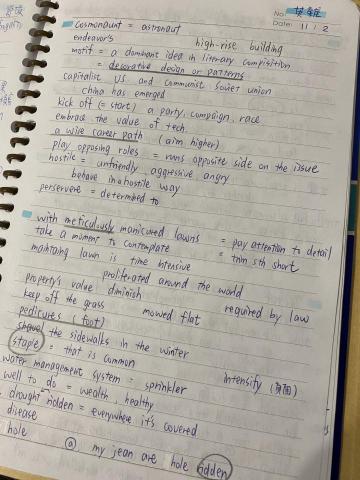 No.
Date 11 / 2
cosmonaunt = astronaut
endeavors high-rise building
motif = a dominant idea in literary compisition
= decorative design or patterns
capitalist US and communist Soviet union
china has emerged
kick off (= start) a party, campaign, race
embrace the value of tech
a wire career path (aim higher)
play opposing roles = runs opposite side on the issue
hostile = unfriendly aggressive angry
behave in a hostile way
persevere = determined to
with meticulously manicured lawns = pay attention to detail
take a moment to contemplate = thin sth short
maintaing lawn is time intensive
proliferated around the world
property's value diminish required by law
keep off the grass mowed flat
pedicures (foot)
shovel the sidewalks in the winter
staple = that is common
water management system = sprinkler intensify
well to do = wealth, healthy
drought ridden = everywhere it's covered
disease
hole
ⓐ my jean are hole ridden